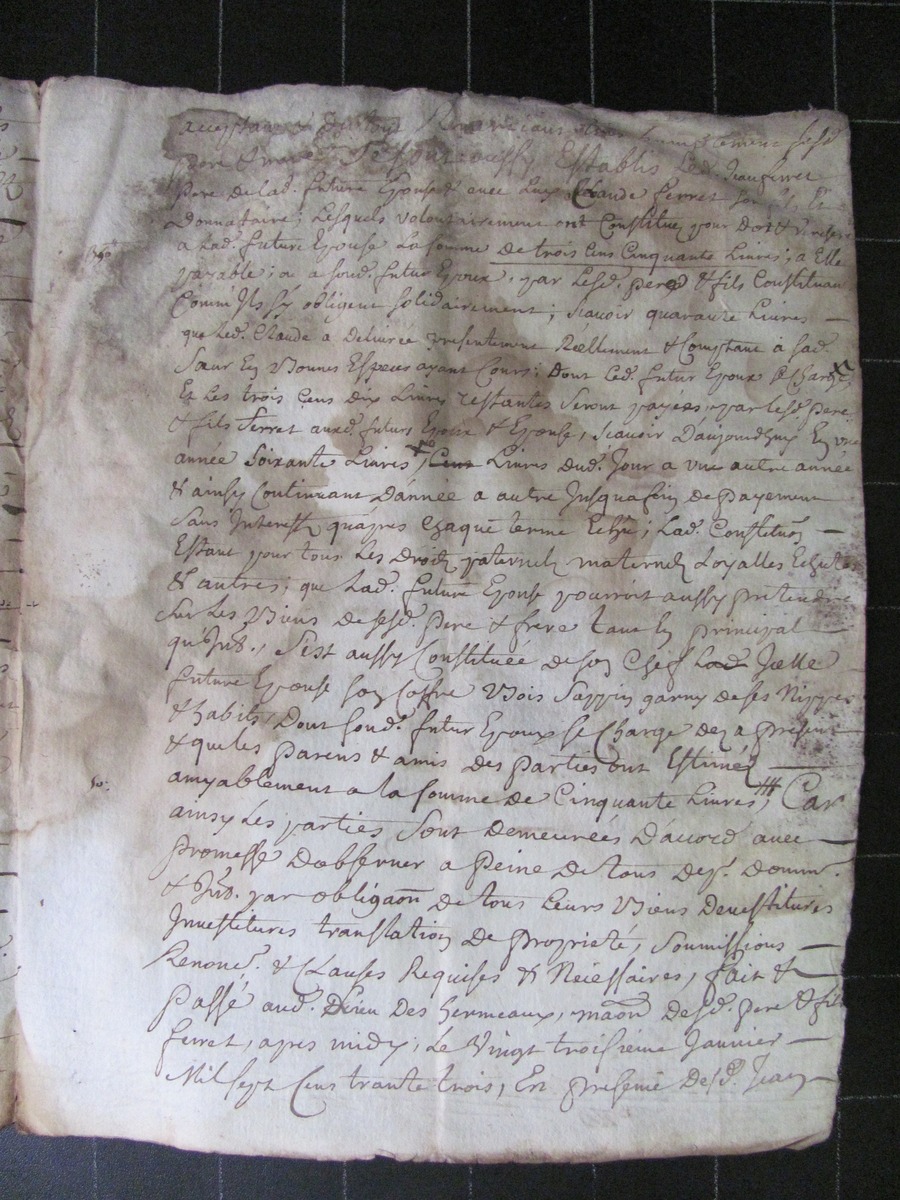 acceptant
pere se sont aussy Establis Led. Jean ferret
Pere de Lad. future Epouse & avec Luy Claude ferret son fils, Et
Donnataire; Lesquels volontairement ont Constitué pour Dot & Verchere
350ᵗᵗ
a Lad. future Epouse La somme de trois Cens Cinquante Livres; a Elle
payable; ou a sond. futur Epoux, par Lesd. pere & fils Constituans
Comm'Ils s'y obligent solidairement; scavoir quarante Livres —
que Led. Claude a Delivrée presentement Réellement & Comptant à sad.
Sœur En Bonnes Especes ayant Cours; Dont Led. futur Epoux se Charge,
Et Les trois Cens Dix Livres restantes Seront payées par lesd. pere
& fils ferret auxd. futurs Epoux & Epouse, scavoir D'aujourdhuy En une
année Soixante Livres, Livres dud. Jour a une autre année
& ainsy Continuant D'année a autre Jusqu'a fin de payement
Sans Interest qu'apres Chaque terme Echeu; Lad. Constituõn —
Estant pour tous Les Droits paternels maternels Loyalles Echutes
& autres; que Lad. future Epouse pourroit aussy pretendre
Sur Les Biens desesd. Pere & frere tant En principal —
qu'Int., S'est aussy Constituée de son Chef Lad. Jelle
future Epouse son Coffre Bois Sappin garny de ses Nippes
& habits, Dont Sond. futur Epoux se Charge des a present
& que les Parens & amis Des Parties ont Estimés —
50:
amyablement a la somme de Cinquante Livres; Car
ainsy Les parties Sont Demeurées D'accord avec —
Promesse D'observer a Peine De tous dep. domm.
& Int. par obligaõn de tous Leurs Biens Devestitures
Investitures translation De Proprieté, Soumissions —
Renonc. & Clauses Requises & Necessaires, fait &
Passé aud. Lieu Des hermeaux, maõn Desd. pere & fils
ferret, apres midy, Le Vingt troisieme Janvier —
Mil sept Cens trante trois, En presence Desd. Jean —